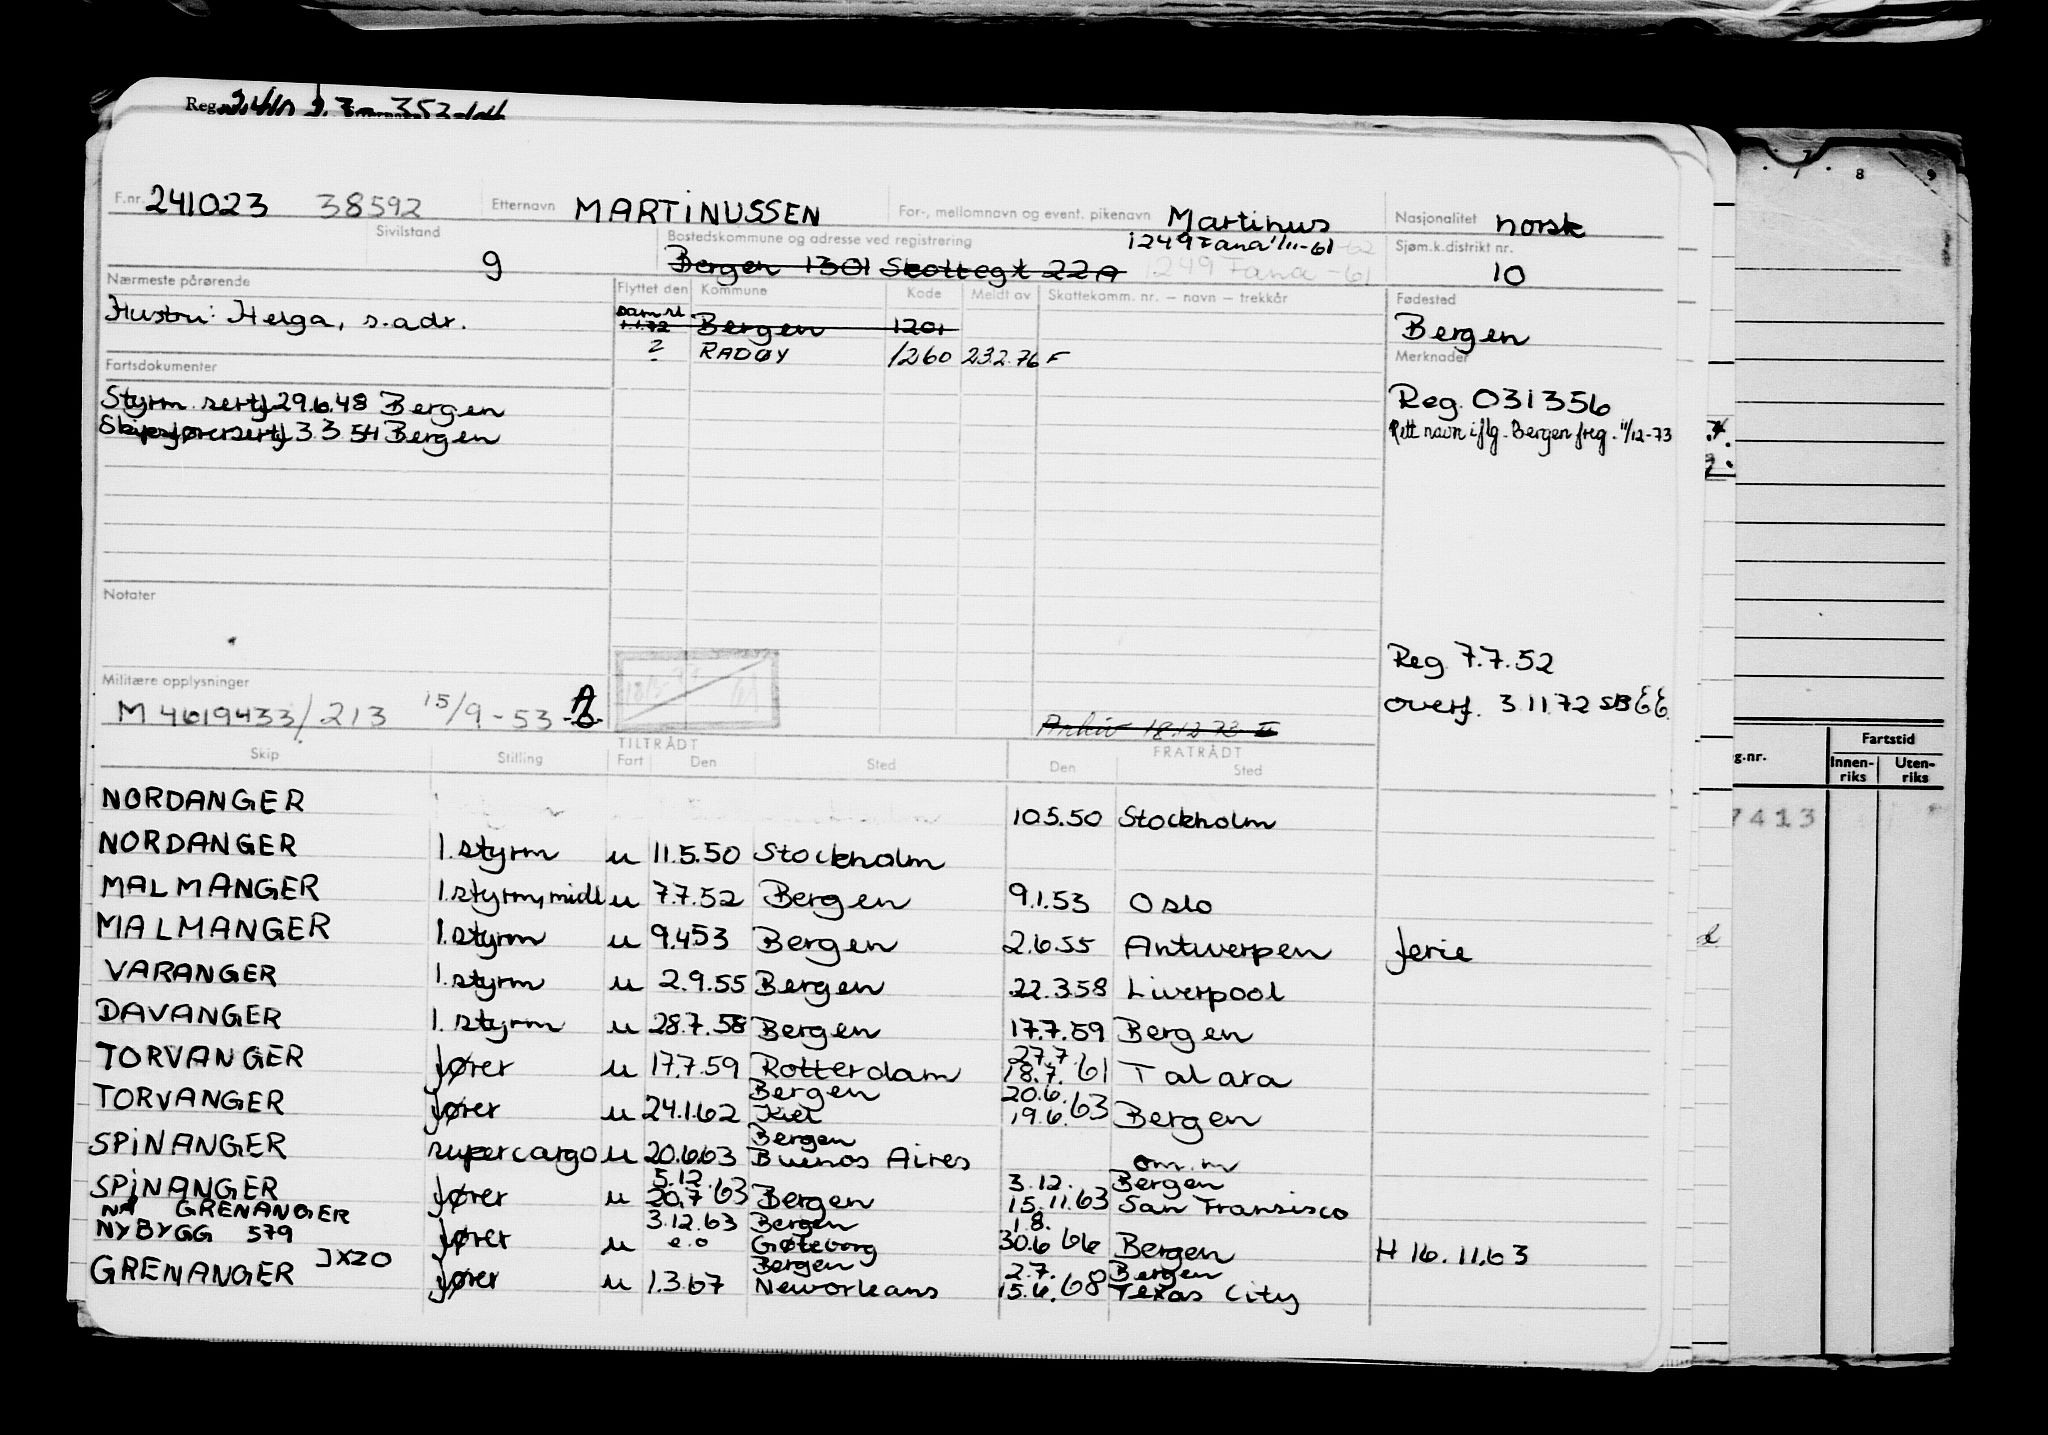 Reg.
F.nr. 241023 38592 Etternavn MARTINUSSEN For-, mellomnavn og event. pikenavn Martinus Nasjonalitet norsk
Sivilstand g Bostedskommune og adresse ved registrering 1249 Fana 1/11-61 Sjøm.k.distrikt nr. 10
Bergen 1301 Skottegt 22A 1249 Fana -61
Nærmeste pårørende Flyttet den Kommune Kode Meldt av Skattekomm. nr. — navn — trekkår Fødested
Hustru: Helga, s.adr. 1.1.72 Bergen 1201 Bergen
? RADØY 1260 23.2.76 F Merknader
Fartsdokumenter
Styrm. sertf 29.6.48 Bergen Reg. 031356
Skipsførersertf 3 3 54 Bergen Rett navn iflg. Bergen freg. 11/12-73
Notater
Reg. 7.7.52
Militære opplysninger
M 4619433/213 15/9-53-A overf. 3.11.72 SB
Arkiv 18.12.73
TILTRÅDT FRATRÅDT
Skip Stilling Fart Den Sted Den Sted
NORDANGER 10.5.50 Stockholm
NORDANGER 1.styrm u 11.5.50 Stockholm
MALMANGER 1.styrm, midl u 7.7.52 Bergen 9.1.53 Oslo
MALMANGER 1.styrm u 9.4.53 Bergen 2.6.55 Antwerpen ferie
VARANGER 1.styrm u 2.9.55 Bergen 22.3.58 Liverpool
DAVANGER 1.styrm u 28.7.58 Bergen 17.7.59 Bergen
TORVANGER fører u 17.7.59 Rotterdam 27.7. 18.7.61 Talara
TORVANGER fører u 24.1.62 Bergen Kiel 20.6. 19.6.63 Bergen
SPINANGER supercargo u 20.6.63 Bergen Buenos Aires om.m
SPINANGER fører u 5.12. 20.7.63 Bergen 3.12. 15.11.63 Bergen San Fransisco
NÅ GRENANGER
NYBYGG 579 fører u 3.12.63 e.o Bergen Gøteborg 1.8. 30.6.66 Bergen H 16.11.63
GRENANGER JXZO fører u 1.3.67 Bergen Neworleans 2.7. 15.6.68 Bergen Texas City
7 8 9
g.nr. Fartstid
Innenriks Utenriks
7413